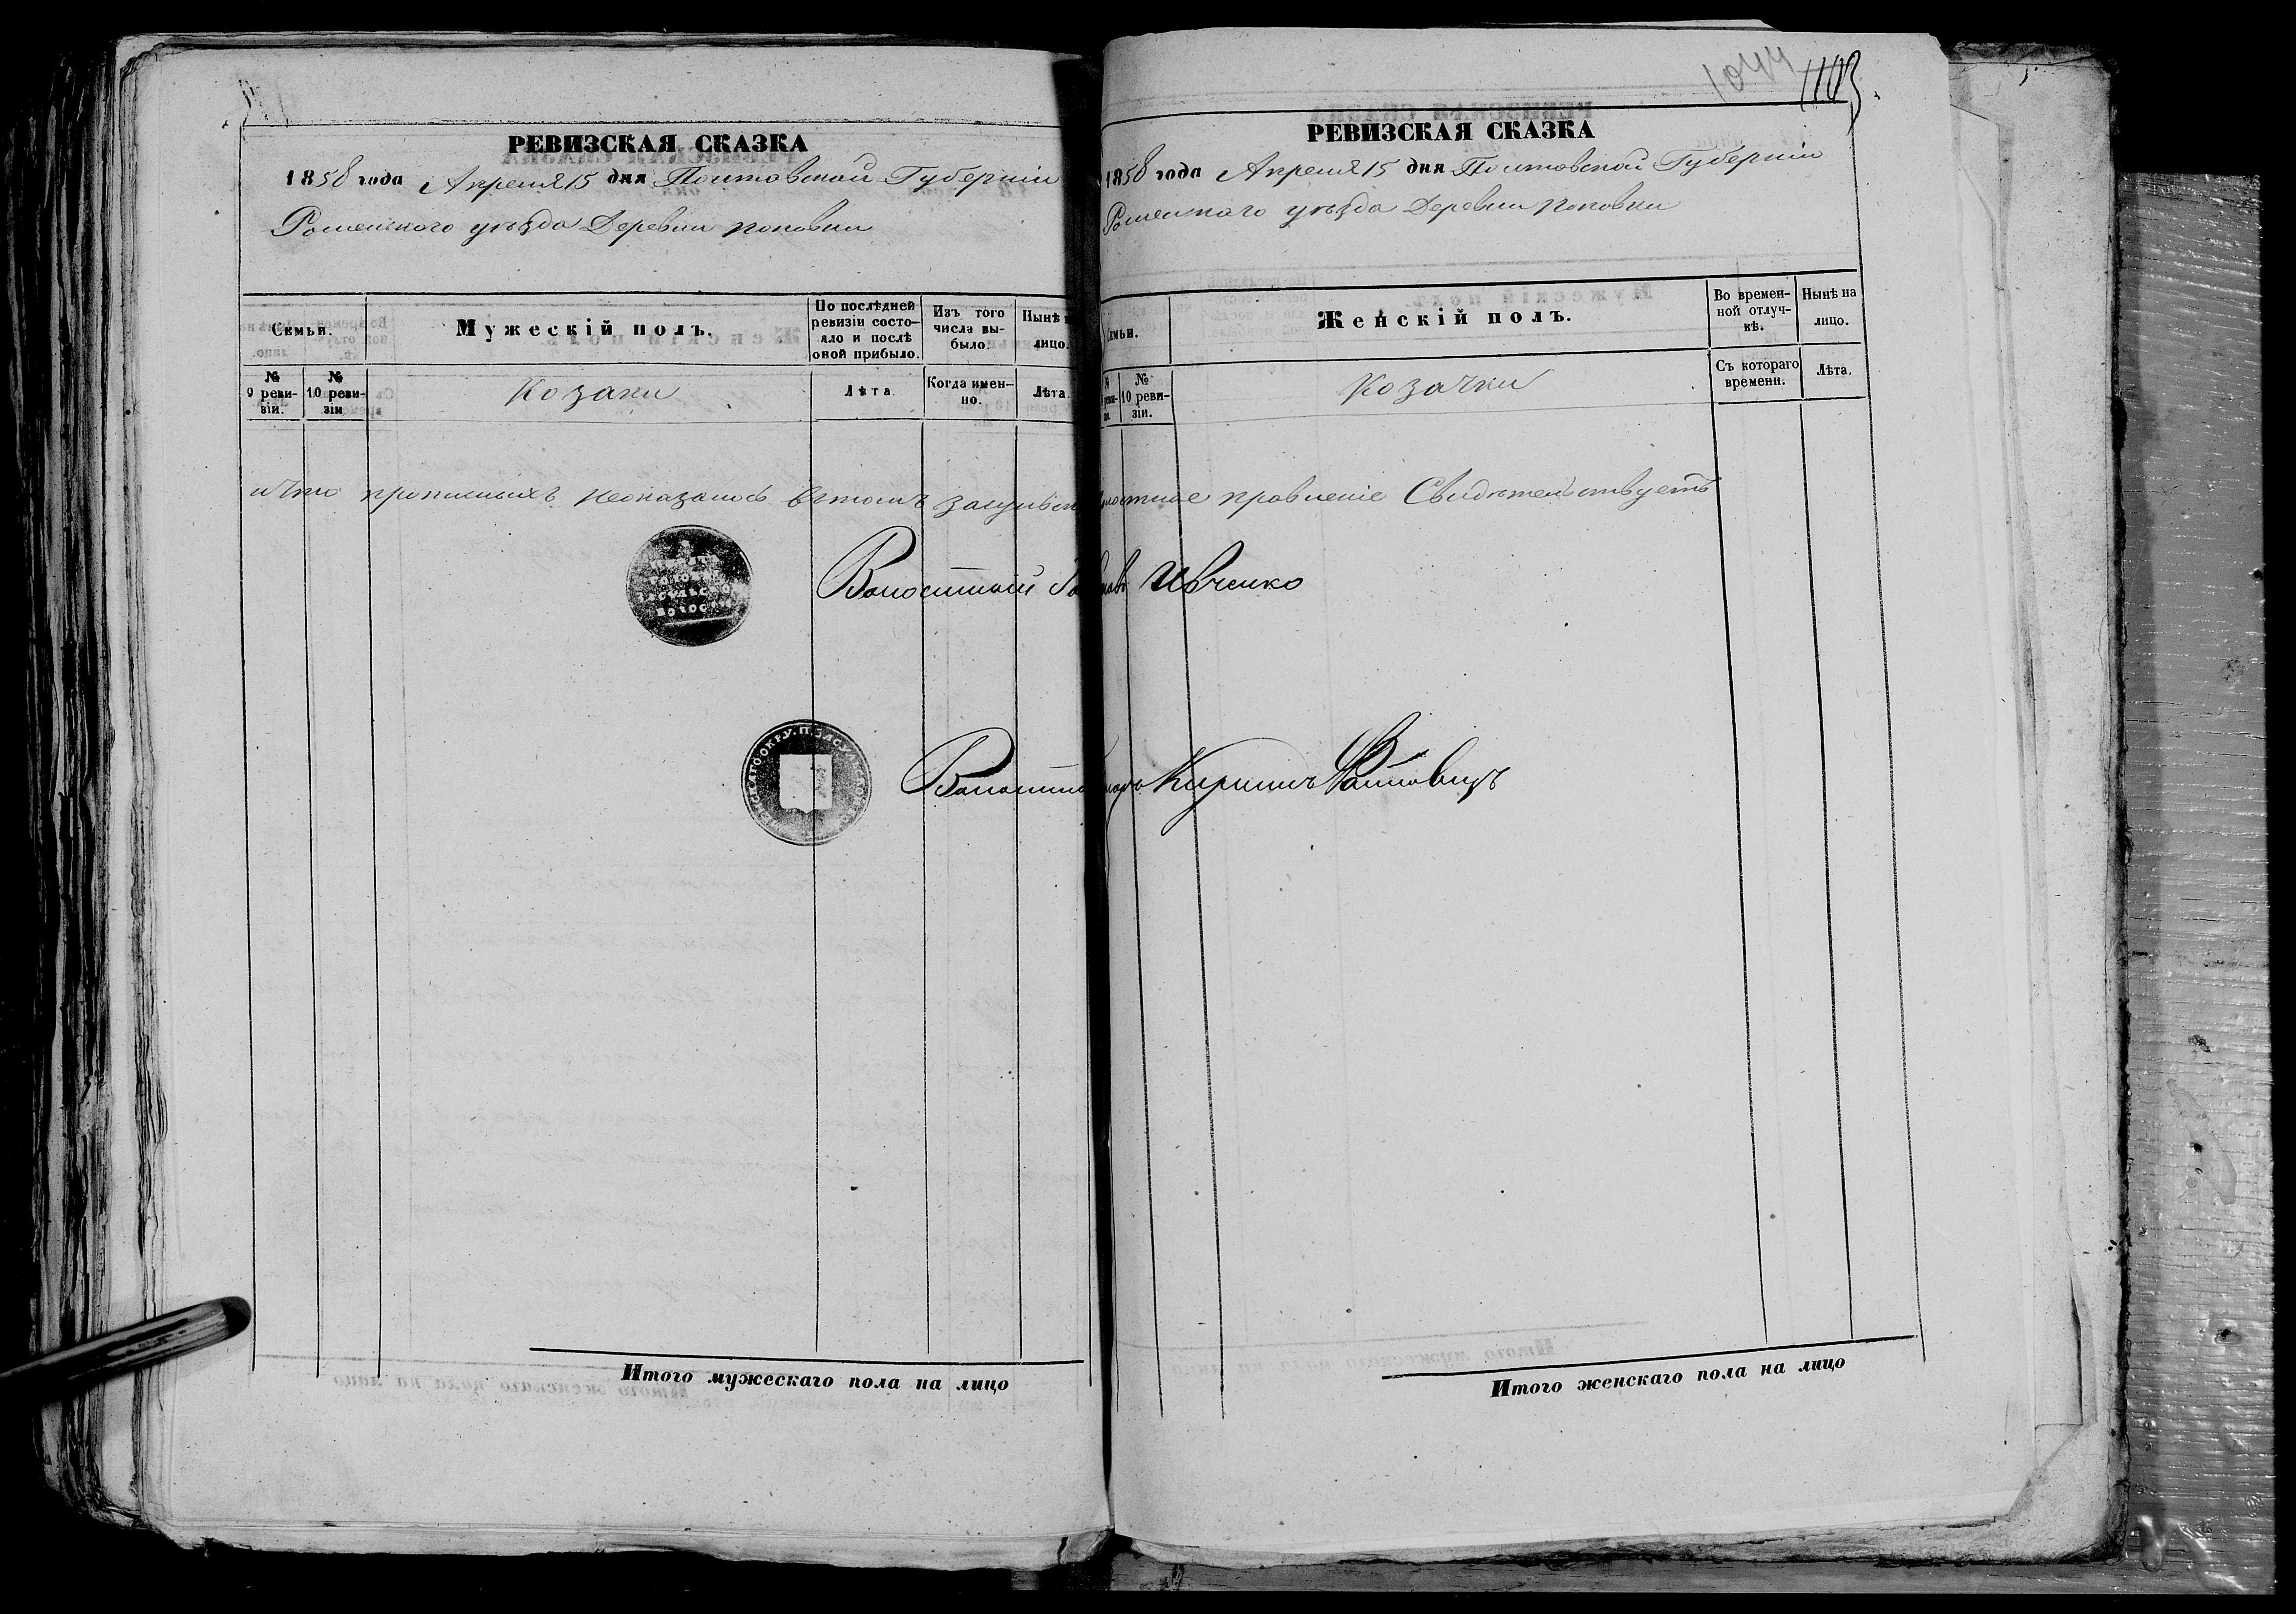 РЕВИЗСКАЯ СКАЗКА
1858 года Апреля 15 дня Полтавской Губерніи
Роменского уѣзда Деревни поповки
Семьи.
Мужескій полъ.
По послѣдней ревизіи состояло и послѣ оной прибыло.
Изъ того числа выбыло.
Нынѣ
лицо.
№ 9 ревизіи.
№ 10 ревизіи
Козаки
Лѣта
Когда именно.
Лѣта.
ичто прописныхъ неоказалось втомъ засульск
Волостной Го
Волостно
Итого мужескаго пола на лицо
1044
1103
РЕВИЗСКАЯ СКАЗКА
1858 года Апреля 15 дня Полтавской Губерніи
Роменскаго уѣзда Деревни поповки
Семьи.
Женскій полъ.
Во временной отлучкѣ.
Нынѣ на лицо.
№ ревизіи.
№ 10 ревизіи.
Козачки
Съ котораго времени.
Лѣта.
лостное правленіе Свидѣтельствуетъ
лова Ивченко
Кирилъ
Итого женскаго пола на лицо